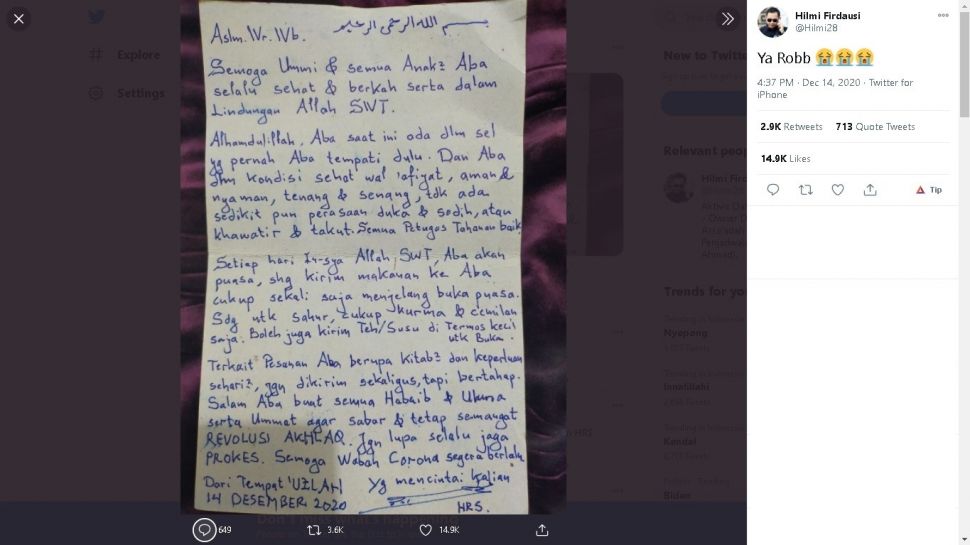 بسم الله الرحمن الرحيم
Aslm. Wr. Wb.
Semoga Ummi & semua Anak2 Aba
selalu sehat & berkah serta dalam
Lindungan Allah SWT.
Alhamdulillah, Aba saat ini ada dlm sel
yg pernah Aba tempati dulu. Dan Aba
dlm kondisi sehat wal 'afiyat, aman &
nyaman, tenang & senang, tdk ada
sedikit pun perasaan duka & sedih, atau
khawatir & takut. Semua Petugas Tahanan baik
Setiap hari In-sya Allah SWT, Aba akan
puasa, shg kirim makanan ke Aba
cukup sekali saja menjelang buka puasa.
Sdg utk sahur, cukup kurma & cemilan
saja. Boleh juga kirim Teh/Susu di Termos kecil
utk Buka.
Terkait Pesanan Aba berupa kitab2 dan keperluan
sehari2, jgn dikirim sekaligus, tapi bertahap.
Salam Aba buat semua Habaib & Ulama
serta Ummat agar sabar & tetap semangat
REVOLUSI AKHLAQ. Jgn lupa selalu jaga
PROKES. Semoga Wabah Corona segera berlalu
Dari Tempat 'UZLAH
14 DESEMBER 2020
Yg mencintai kalian
HRS.
649
3.6K
14.9K
Hilmi Firdausi
@Hilmi28
Ya Robb 😭😭😭
4:37 PM · Dec 14, 2020 · Twitter for
iPhone
2.9K Retweets 713 Quote Tweets
14.9K Likes
Tip
Explore
Settings
New to Twitter
Relevant peop
Hilmi Fird
Trends for you
Nyepong
Innafillahi
Kendal
Biden